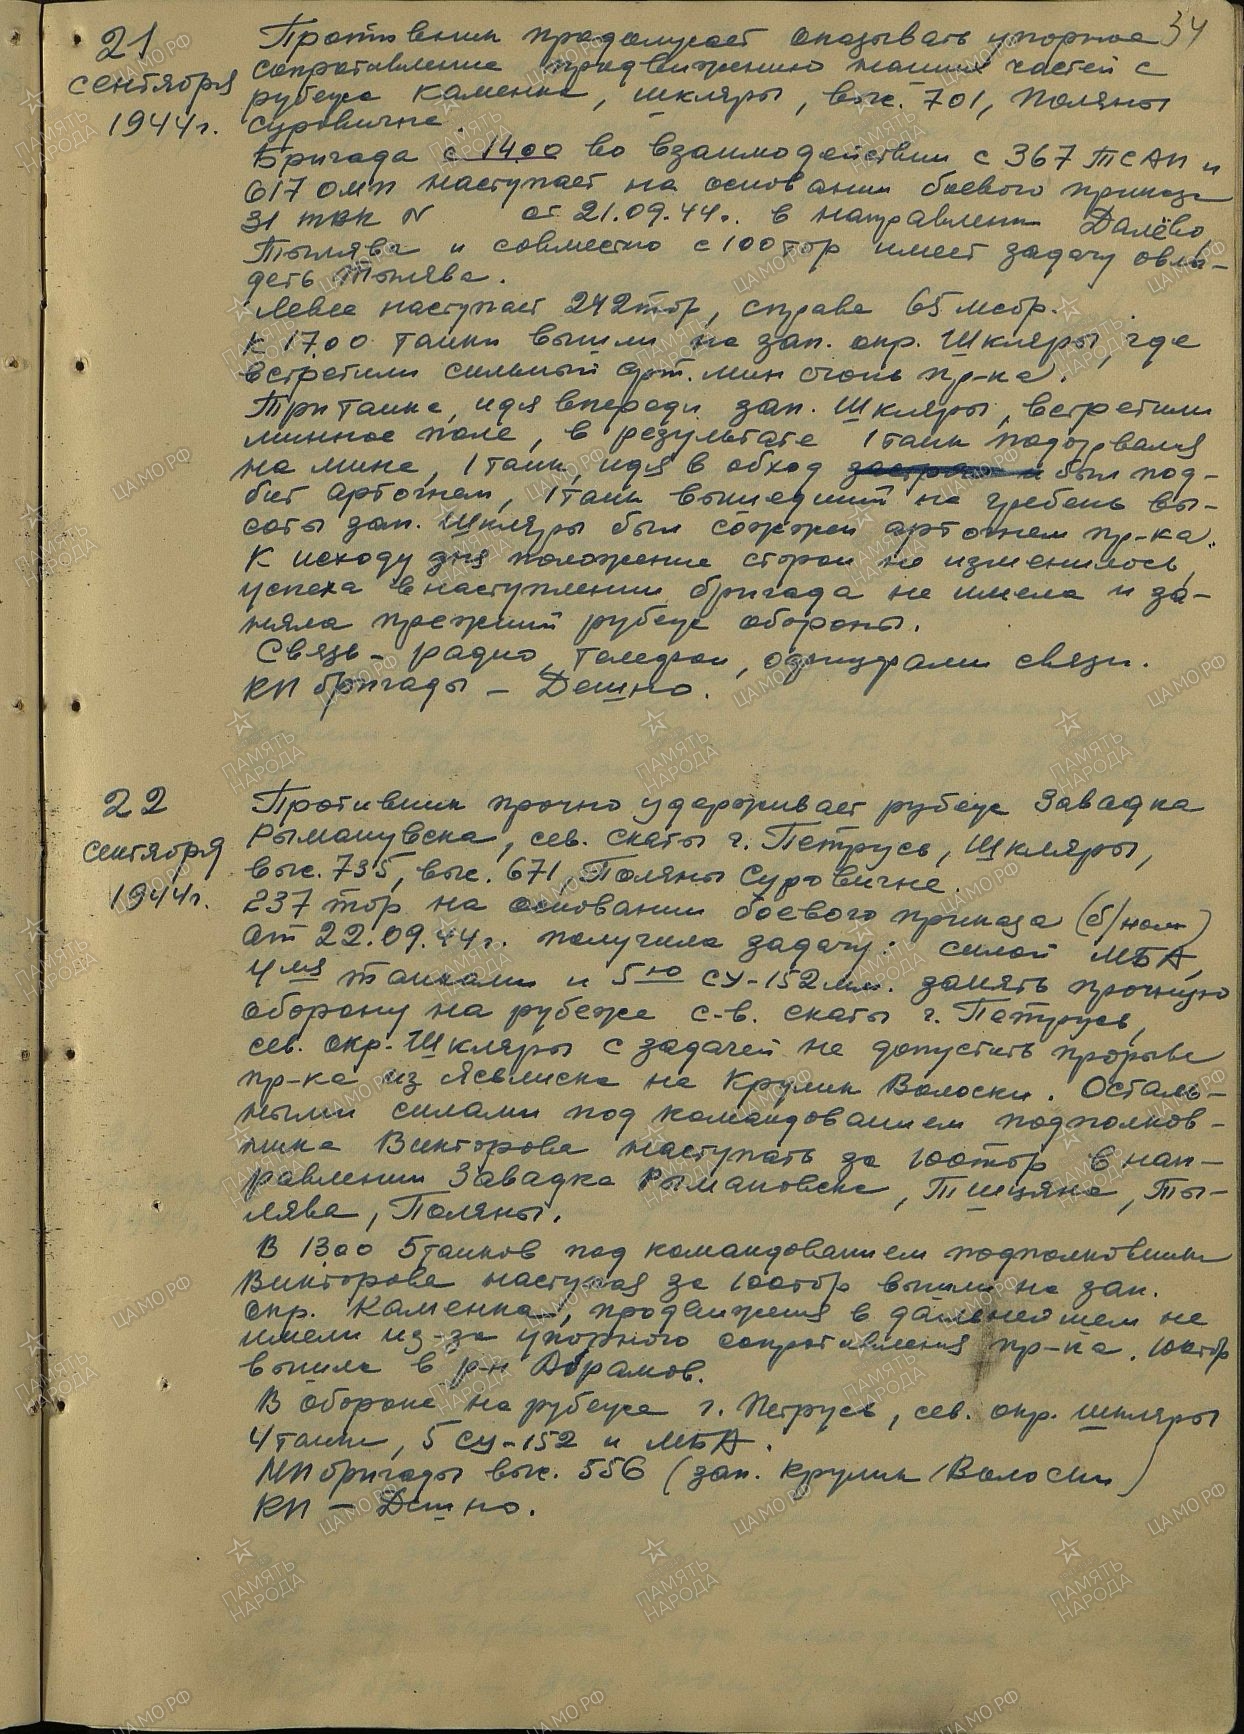 34
21
сентября
1944г.
Противник продолжает оказывать упорное
сопротивление продвижению наших частей с
рубежа Каменка, Шкляры, выс. 701, Поляны
Суровичне.
Бригада с 14.00 во взаимодействии с 367 ТСАП и
617 омп наступает на основании боевого приказа
31 твк N от 21.09.44г. в направлении Далёво
Тылява и совместно с 100тбр имеет задачу овла-
деть Тылява.
Левее наступает 242тбр, справа 65 мсбр.
К 17.00 танки вышли на зап. окр. Шкляры, где
встретили сильный арт. мин огонь пр-ка.
Три танка, идя впереди зап. Шкляры, встретили
минное поле, в результате 1 танк подорвался
на мине, 1 танк, идя в обход был под-
бит артогнем, 1 танк вышедший на гребень вы-
соты зап. Шкляры был сожжен артогнем пр-ка.
К исходу дня положение сторон не изменилось,
успеха в наступлении бригада не имела и за-
няла прежний рубеж обороны.
Связь – радио, телефон, офицерами связи.
КП бригады – Дешно.
22
сентября
1944г.
Противник прочно удерживает рубеж Завадка
Рыманувска, сев. скаты г. Петрусь, Шкляры,
выс. 735, выс. 671, Поляны Суровичне.
237 тбр на основании боевого приказа (б/ном)
от 22.09.44г. получила задачу: силой МБА,
4мя танками и 5ю СУ-152мм. занять прочную
оборону на рубеже с-в. скаты г. Петрусь,
сев. окр. Шкляры с задачей не допустить прорыва
пр-ка из Ясьлиска на Крулик Волоски. Осталь-
ными силами под командованием подполков-
ника Викторова наступать за 100тбр в нап-
равлении Завадка Рымановска, Тишцяна, Ты-
лява, Поляны.
В 13оо 5танков под командованием подполковника
Викторова наступая за 100тбр вышли на зап.
окр. Каменка, продвижения в дальнейшем не
имели из-за упорного сопротивления пр-ка. 100тбр
вышла в р-н Абрамов.
В обороне на рубеже г. Петрусь, сев. окр. Шкляры
4танка, 5 СУ-152 и МБА.
НП бригады выс. 556 (зап. Крулик Волоски)
КП – Дешно.